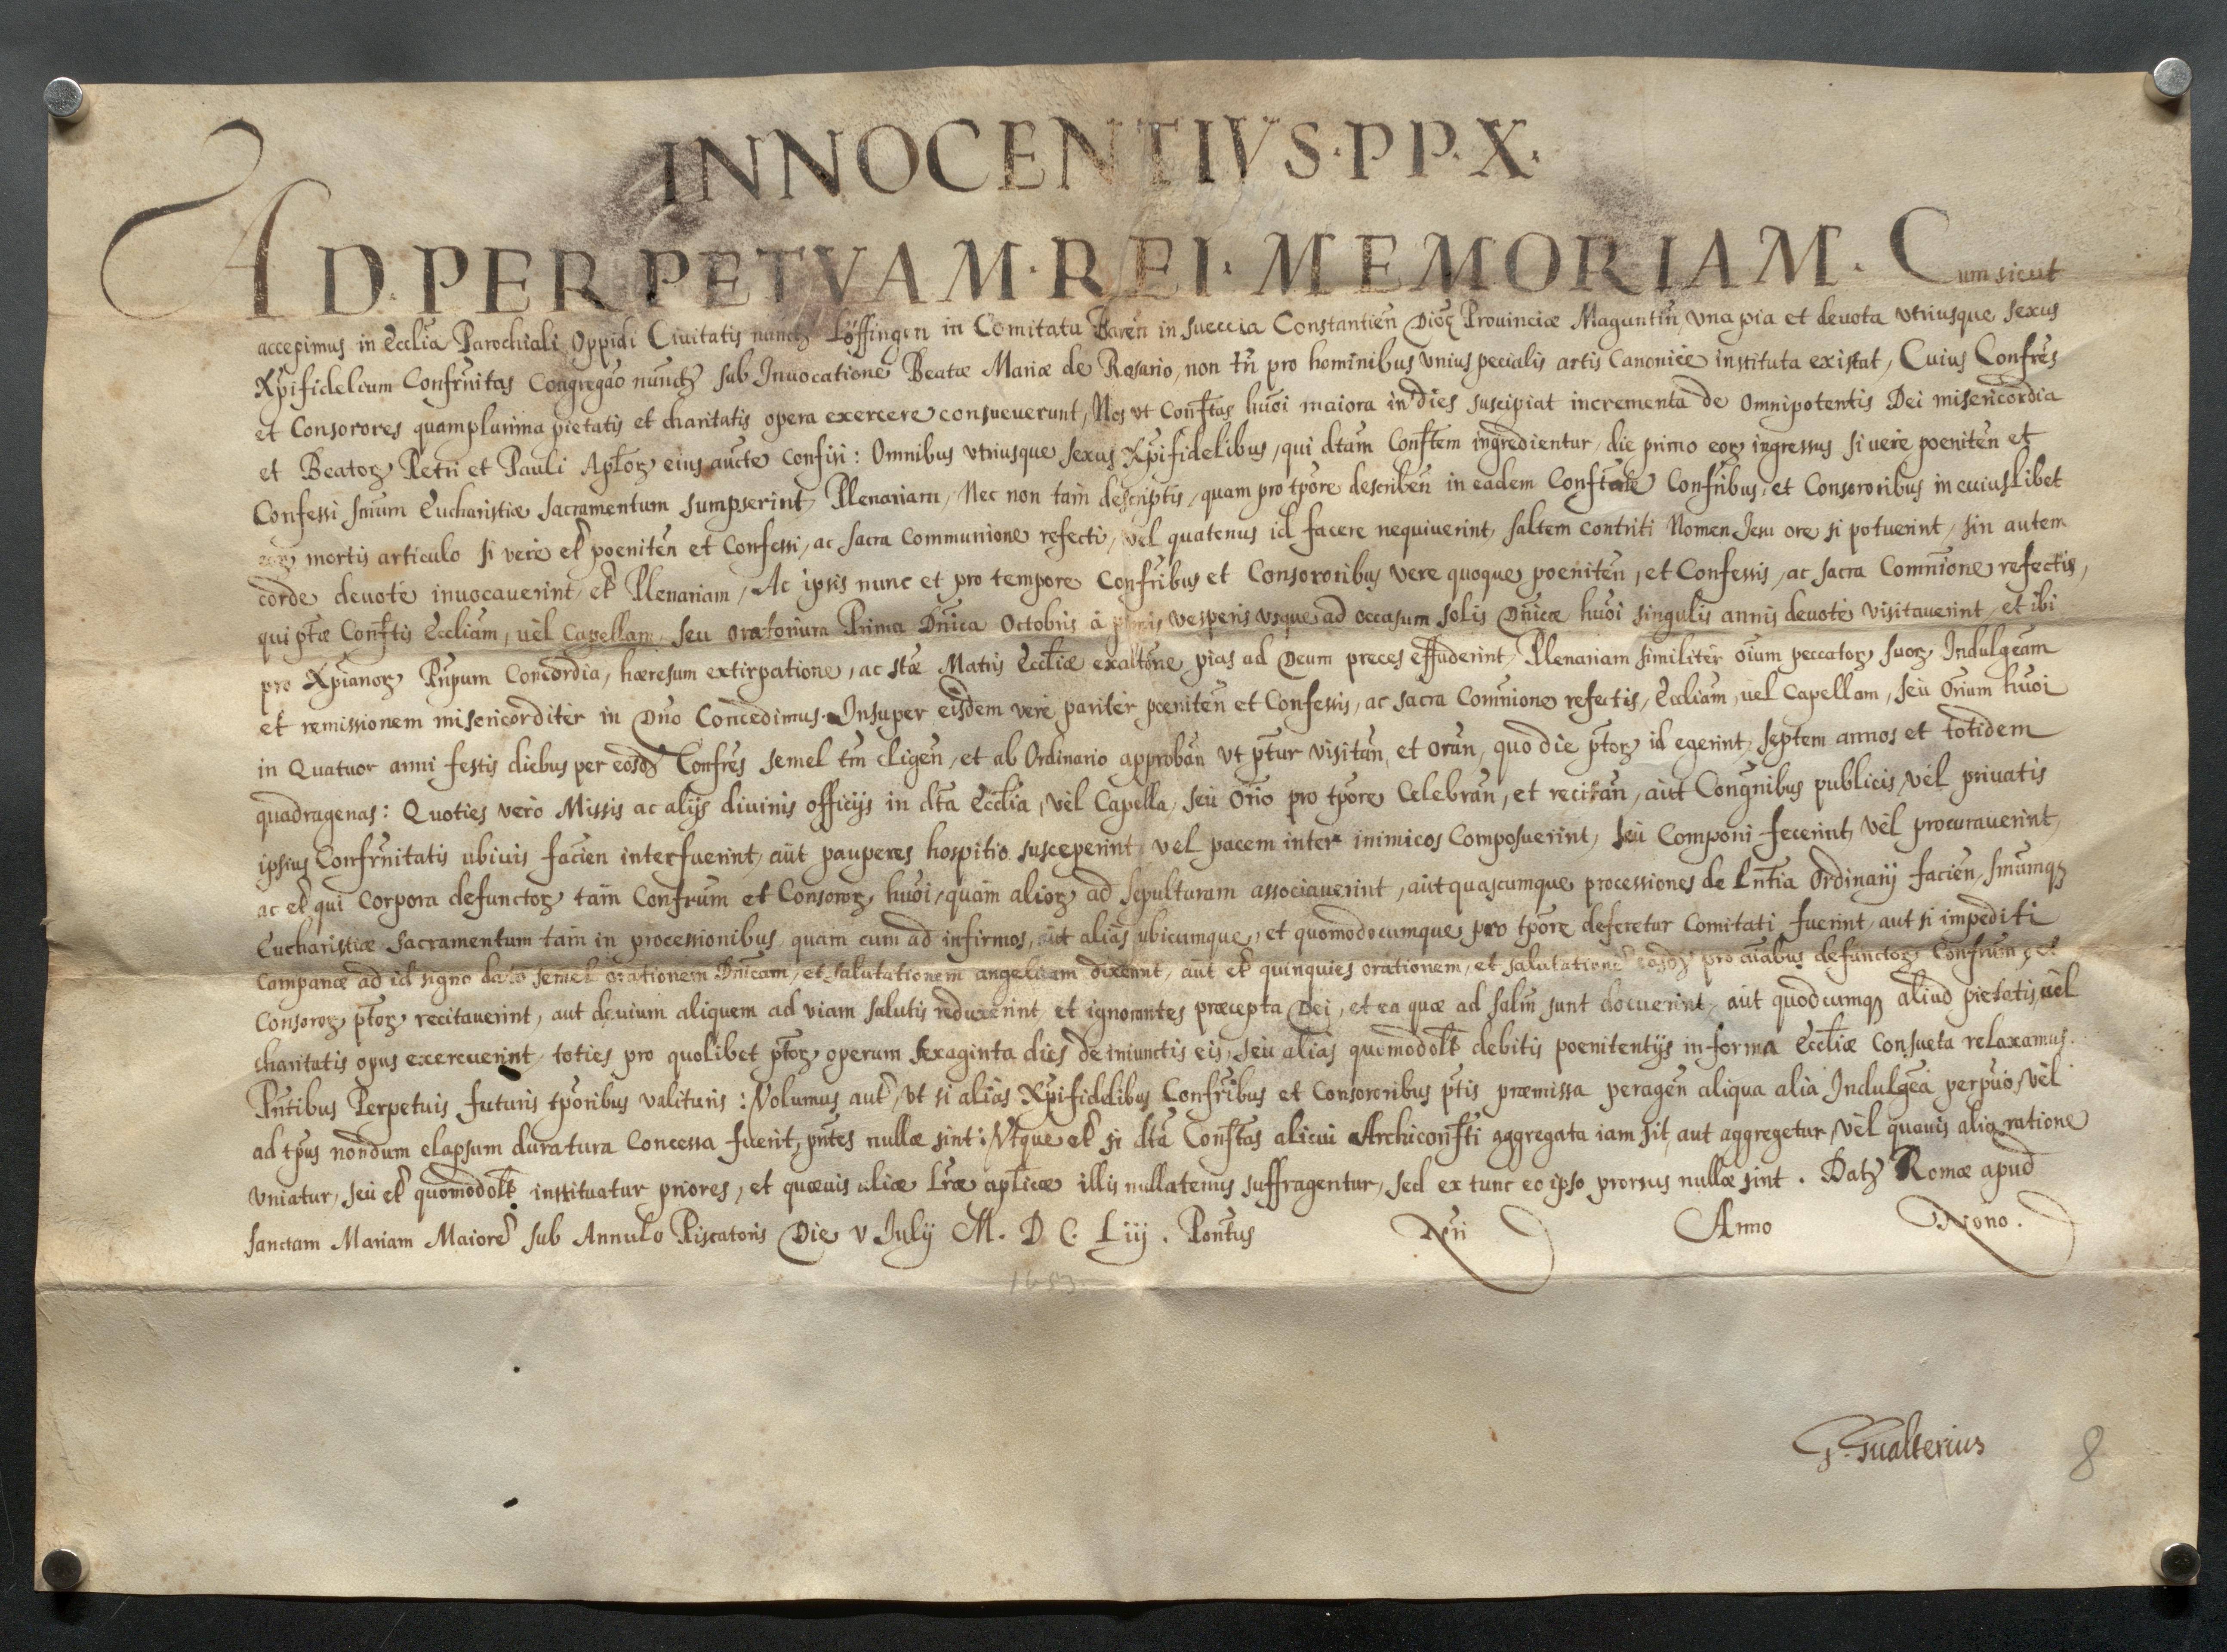 INNOCENTIVS·PP·X·
AD·PERPETVAM·REI·MEMORIAM· Cum sicut
accepimus in Ecclia Parochiali Oppidi Ciuitatis nancz Löffingen in Comitatu Baren in Sueccia Constantien Dioc Prouinciæ Maguntin, vna pia et deuota vtriusque sexus
Xpifidelium Confrnitas Congregao nuncz sub Inuocatione Beatæ Mariæ de Rosario, non tn pro hominibus vnius specialis artis Canonice instituta existat, Cuius Confres
et Consorores quamplurima pietatis et charitatis opera exercere consueuerunt, Nos vt Confrtas huoi maiora in dies suscipiat incrementa de Omnipotentis Dei misericordia
et Beatoꝝ Petri et Pauli Aptoꝝ eius aucte confisi: Omnibus vtriusque sexus Xpifidelibus, qui dtam Confrtem ingredientur, die primo eoꝝ ingressus si vere poeniten et
Confessi Smum Eucharistiæ Sacramentum sumpserint, Plenariam, Nec non tam descriptis, quam pro tpore describen in eadem Confrtate Confribus, et Consororibus in cuiuslibet
eoꝝ mortis articulo si vere et poeniten et Confessi, ac sacra Communione refecti, vel quatenus id facere nequiuerint, saltem contriti Nomen Iesu ore si potuerint, sin autem
corde deuote inuocauerint, et Plenariam, Ac ipsis nunc et pro tempore Confribus et Consororibus vere quoque poeniten, et Confessis, ac sacra Comnione refectis,
qui ptæ Confrtis Eccliam, uel Capellam, seu Oratorium Prima Dnica Octobris à primis vesperis vsque ad occasum solis Dnicæ huoi singulis annis deuote visitauerint, et ibi
pro Xpianoꝝ Pnpum Concordia, hæresum extirpatione, ac Stæ Matris Eccliæ exaltone pias ad Deum preces effuderint, Plenariam similiter oium peccatoꝝ suoꝝ Indulgeam
et remissionem misericorditer in Dno Concedimus. Insuper eisdem vere pariter poeniten et Confessis, ac sacra Comnione refectis, Eccliam, uel Capellam, seu Orium huoi
in Quatuor anni festis diebus per eosdꝫ Confres semel tm eligen, et ab Ordinario approban vt ptur visitan, et oran, quo die ptoꝝ id egerint, septem annos et totidem
quadragenas: Quoties vero Missis ac alijs diuinis officijs in dta Ecclia, vel Capella, seu Orio pro tpore Celebran, et recitan, aut Congnibus publicis, vel priuatis
ipsius Confrnitatis ubiuis facien interfuerint, aut pauperes hospitio susceperint, vel pacem inter inimicos Composuerint, seu Componi fecerint, vel procurauerint,
ac et qui Corpora defunctoꝝ tam Confrum et Consoroꝝ huoi, quam alioꝝ ad sepulturam associauerint, aut quascumque processiones de Lntia Ordinarij facien, Smumqꝫ
Eucharistiæ Sacramentum tam in processionibus, quam cum ad infirmos, aut alias ubicumque, et quomodocumque pro tpore deferetur comitati fuerint, aut si impediti
Campanæ ad id signo dato semel orationem Dnicam, et salutationem angelicam dixerint, aut et quinquies orationem, et salutatione easdꝫ pro aiabus defunctoꝝ Confrum, et
Consoroꝝ ptoꝝ recitauerint, aut deuium aliquem ad viam salutis reduxerint, et ignorantes præcepta Dei, et ea quæ ad salm sunt docuerint, aut quodcumqꝫ aliud pietatis, uel
charitatis opus exercuerint, toties pro quolibet ptoꝝ operum sexaginta dies de iniunctis eis, seu alias quomodolt debitis poenitentijs in forma Eccliæ Consueta relaxamus.
Pntibus Perpetuis futuris tporibus valituris: Volumus aut, vt si alias Xpifidelibus Confribus et Consororibus ptis præmissa peragen aliqua alia Indulgea perpuo, vel
ad tpus nondum elapsum duratura Concessa fuerit, pntes nullæ sint: Vtque et si dta Confrtas alicui Archiconfrti aggregata iam sit, aut aggregetur, vel quauis alia ratione
vniatur, seu et quomodolt instituatur priores, et quæuis aliæ Lræ apticæ illis nullatenus suffragentur, sed ex tunc eo ipso prorsus nullæ sint. Datꝫ Romæ apud
Sanctam Mariam Maiore sub Annulo Piscatoris Die v Iulij M. D C. Liij. Pontus Nri Anno Nono.
1653
G. Gualterius
8